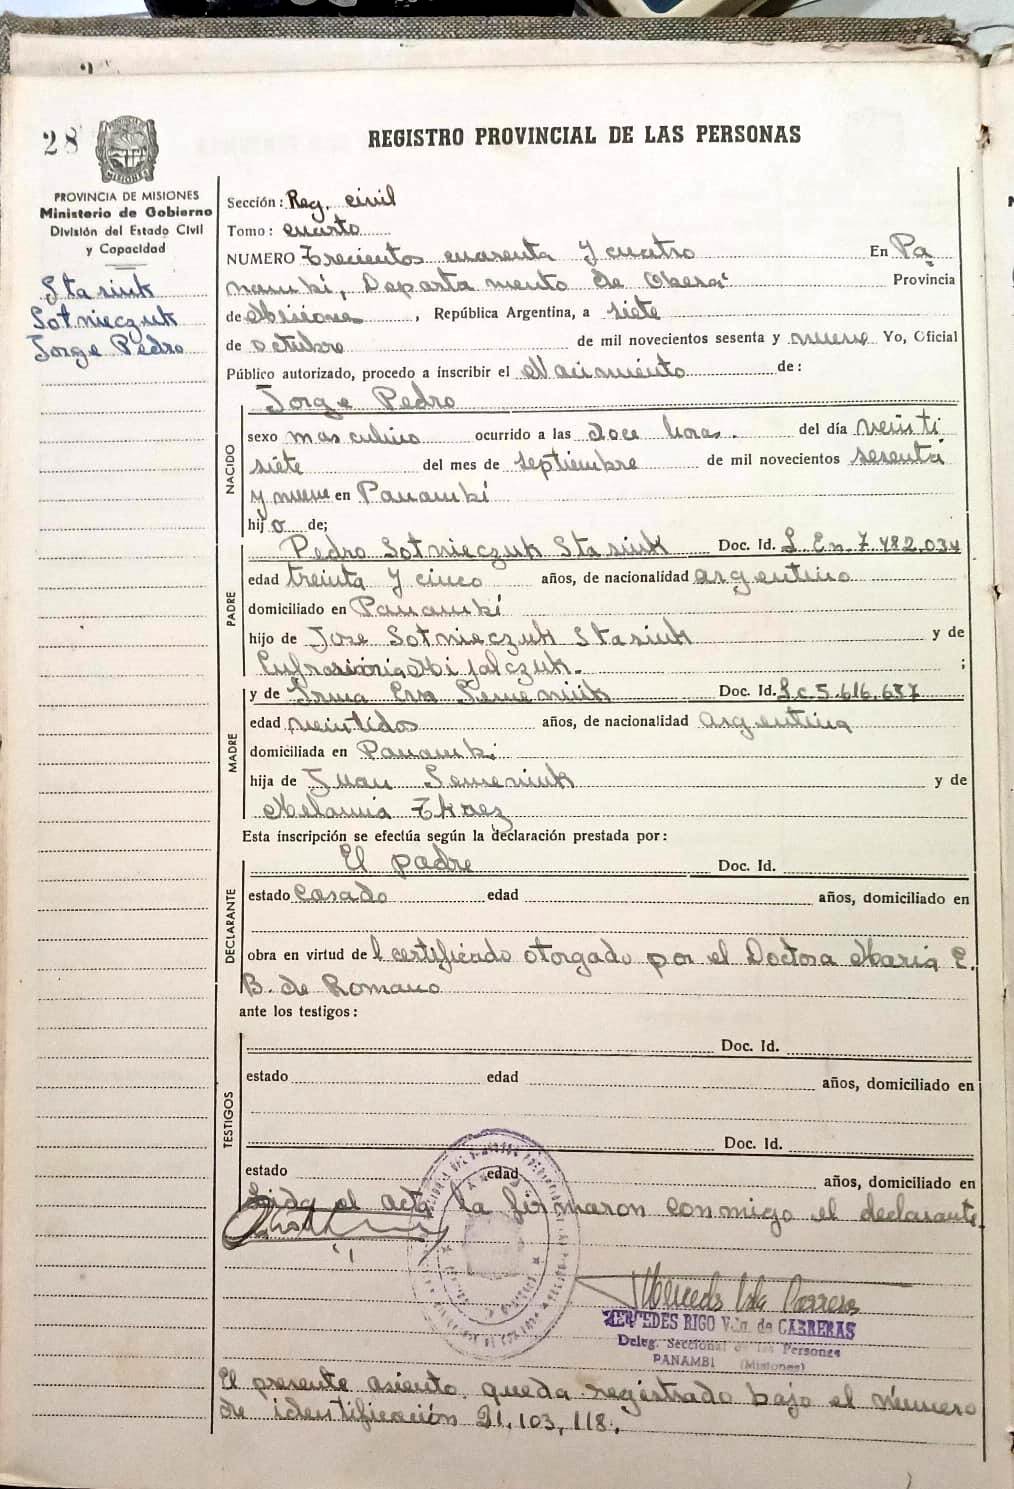 28
REGISTRO PROVINCIAL DE LAS PERSONAS
MISIONES
PROVINCIA DE MISIONES
Ministerio de Gobierno
División del Estado Civil
y Capacidad
Stasiuk
Sotnieczuk
Jorge Pedro
Sección: Reg. civil
Tomo: cuarto
NUMERO Trecientos cuarenta y cuatro En Pa
nambí, Departamento de Oberá Provincia
de Misiones, República Argentina, a siete
de octubre de mil novecientos sesenta y nueve Yo, Oficial
Público autorizado, procedo a inscribir el Nacimiento de:
Jorge Pedro
NACIDO
sexo masculino ocurrido a las doce horas. del día veinti
siete del mes de septiembre de mil novecientos sesenta
y nueve en Panambí
hijo de;
PADRE
Pedro Sotnieczuk Stasiuk Doc. Id. L. En. 7.482.034
edad treinta y cinco años, de nacionalidad argentino
domiciliado en Panambí
hijo de Jose Sotnieczuk Stasiuk y de
Mijalczuk. ;
MADRE
y de Irma Eva Semeniuk Doc. Id. L.c. 5.616.637
edad veintidos años, de nacionalidad argentina
domiciliada en Panambí
hija de Juan Semeniuk y de
Melania Tkacz
Esta inscripción se efectúa según la declaración prestada por:
DECLARANTE
El padre Doc. Id.
estado casado edad años, domiciliado en
obra en virtud del certificado otorgado por el Doctora Maria E.
B. de Romano
ante los testigos:
TESTIGOS
Doc. Id.
estado edad años, domiciliado en
Doc. Id.
estado edad años, domiciliado en
Leida el acta la firmaron conmigo el declarante
MERCEDES RIGO Vda. de CARRERAS
Deleg. Seccional de las Personas
PANAMBI (Misiones)
El presente asiento queda registrado bajo el número
de identificación 21.103.118.